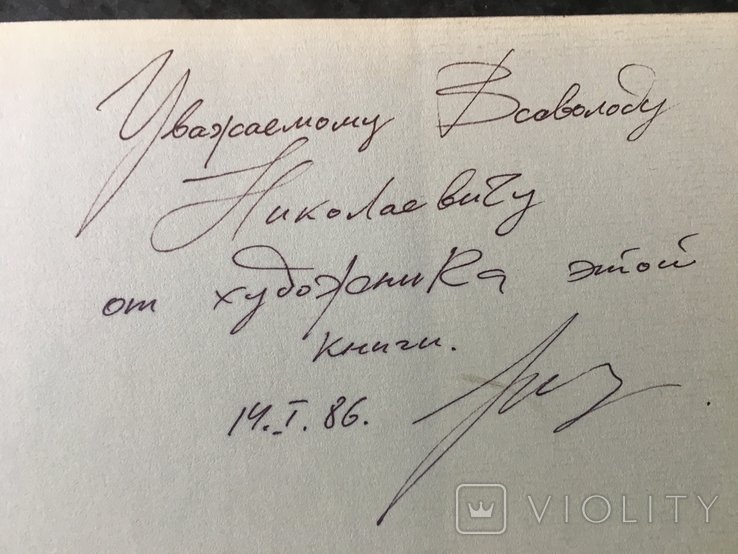 Уважаемому Всеволоду
Николаевичу
от художника этой
книги.
14.I.86.
VIOLITY